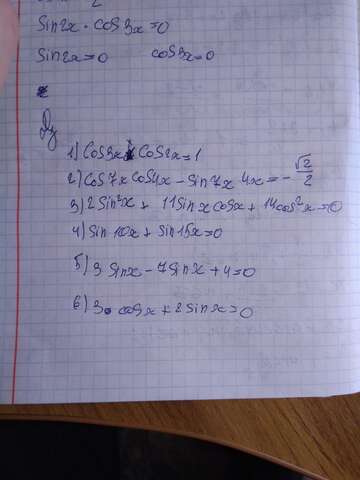 sin2x · cos3x=0
sin2x=0 cos3x=0
Ду
1) cos3x cos2x=1
2) cos7x cos4x - sin7x 4x = - √2/2
3) 2sin²x + 11sinx cosx + 14cos²x=0
4) sin10x + sin15x=0
5) 3 sinx - 7sinx + 4=0
6) 3 cosx + 2sinx=0